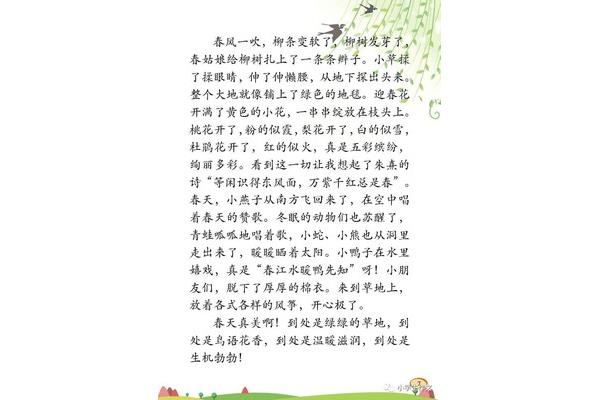 春风一吹，柳条变软了，柳树发芽了，
春姑娘给柳树扎上了一条条辫子。小草揉
了揉眼睛，伸了伸懒腰，从地下探出头来。
整个大地就像铺上了绿色的地毯。迎春花
开满了黄色的小花，一串串绽放在枝头上。
桃花开了，粉的似霞，梨花开了，白的似雪，
杜鹃花开了，红的似火，真是五彩缤纷，
绚丽多彩。看到这一切让我想起了朱熹的
诗“等闲识得东风面，万紫千红总是春”。
春天，小燕子从南方飞回来了，在空中唱
着春天的赞歌。冬眠的动物们也苏醒了，
青蛙呱呱地唱着歌，小蛇、小熊也从洞里
走出来了，暖暖晒着太阳。小鸭子在水里
嬉戏，真是“春江水暖鸭先知”呀！小朋
友们，脱下了厚厚的棉衣。来到草地上，
放着各式各样的风筝，开心极了。
春天真美啊！到处是绿绿的草地，到
处是鸟语花香，到处是温暖滋润，到处是
生机勃勃！